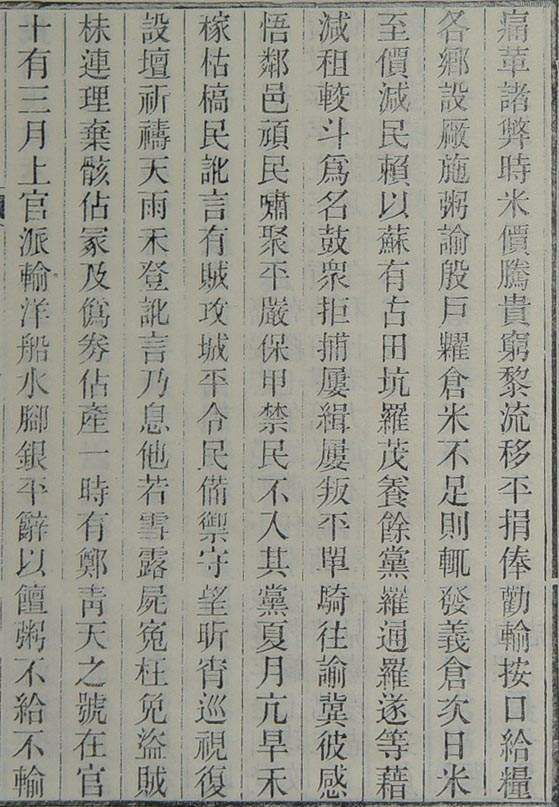 痛革諸弊時米價騰貴窮黎流移平捐俸勸輸按口給糧
各鄉設厰施粥諭殷戶糶倉米不足則輒發義倉次日米
至價減民賴以蘇有古田坑羅茂養餘黨羅通羅遂等藉
減租較斗爲名鼓衆拒捕屢緝屢叛平單騎往諭冀彼感
悟鄰邑頑民嘯聚平嚴保甲禁民不入其黨夏月亢旱禾
稼枯槁民訛言有賊攻城平令民備禦守望昕宵巡視復
設壇祈禱天雨禾登訛言乃息他若雪露屍冤枉免盜賊
株連理棄骸佔冢及僞劵佔產一時有鄭靑天之號在官
十有三月上官派輸洋船水腳銀平辭以饘粥不給不輸